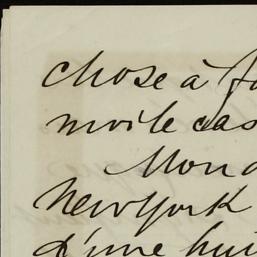 chose à fa
moile cas
Mond
New York
d'une hui